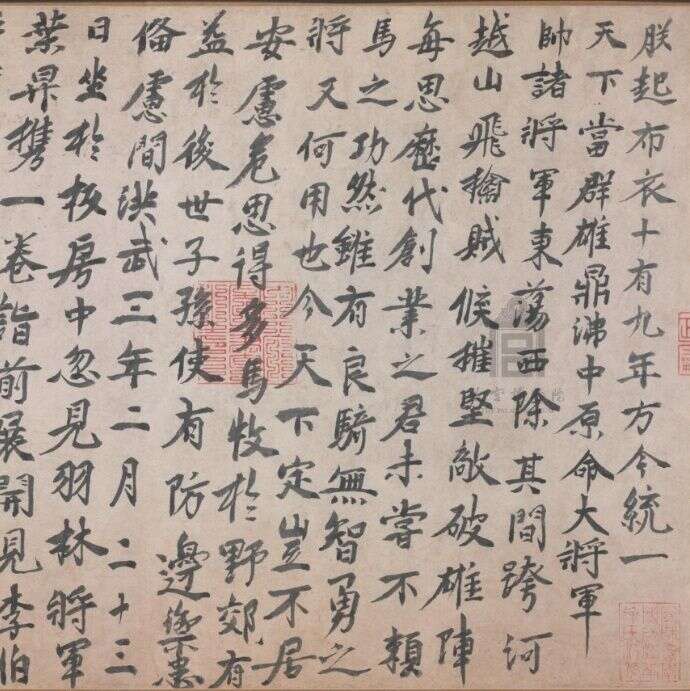 朕起布衣十有九年方今統一
天下當群雄鼎沸中原命大將軍
帥諸將軍東蕩西除其間跨河
越山飛擒賊候摧堅敵破雄陣
每思歷代創業之君未嘗不賴
馬之功然雖有良騎無智勇之
將又何用也今天下定豈不居
安慮危思得多馬牧於野郊有
益於後世子孫使有防邊禦患
偹慮間洪武三年二月二十三
日坐於板房中忽見羽林將軍
葉昇携一卷詣前展開見李伯